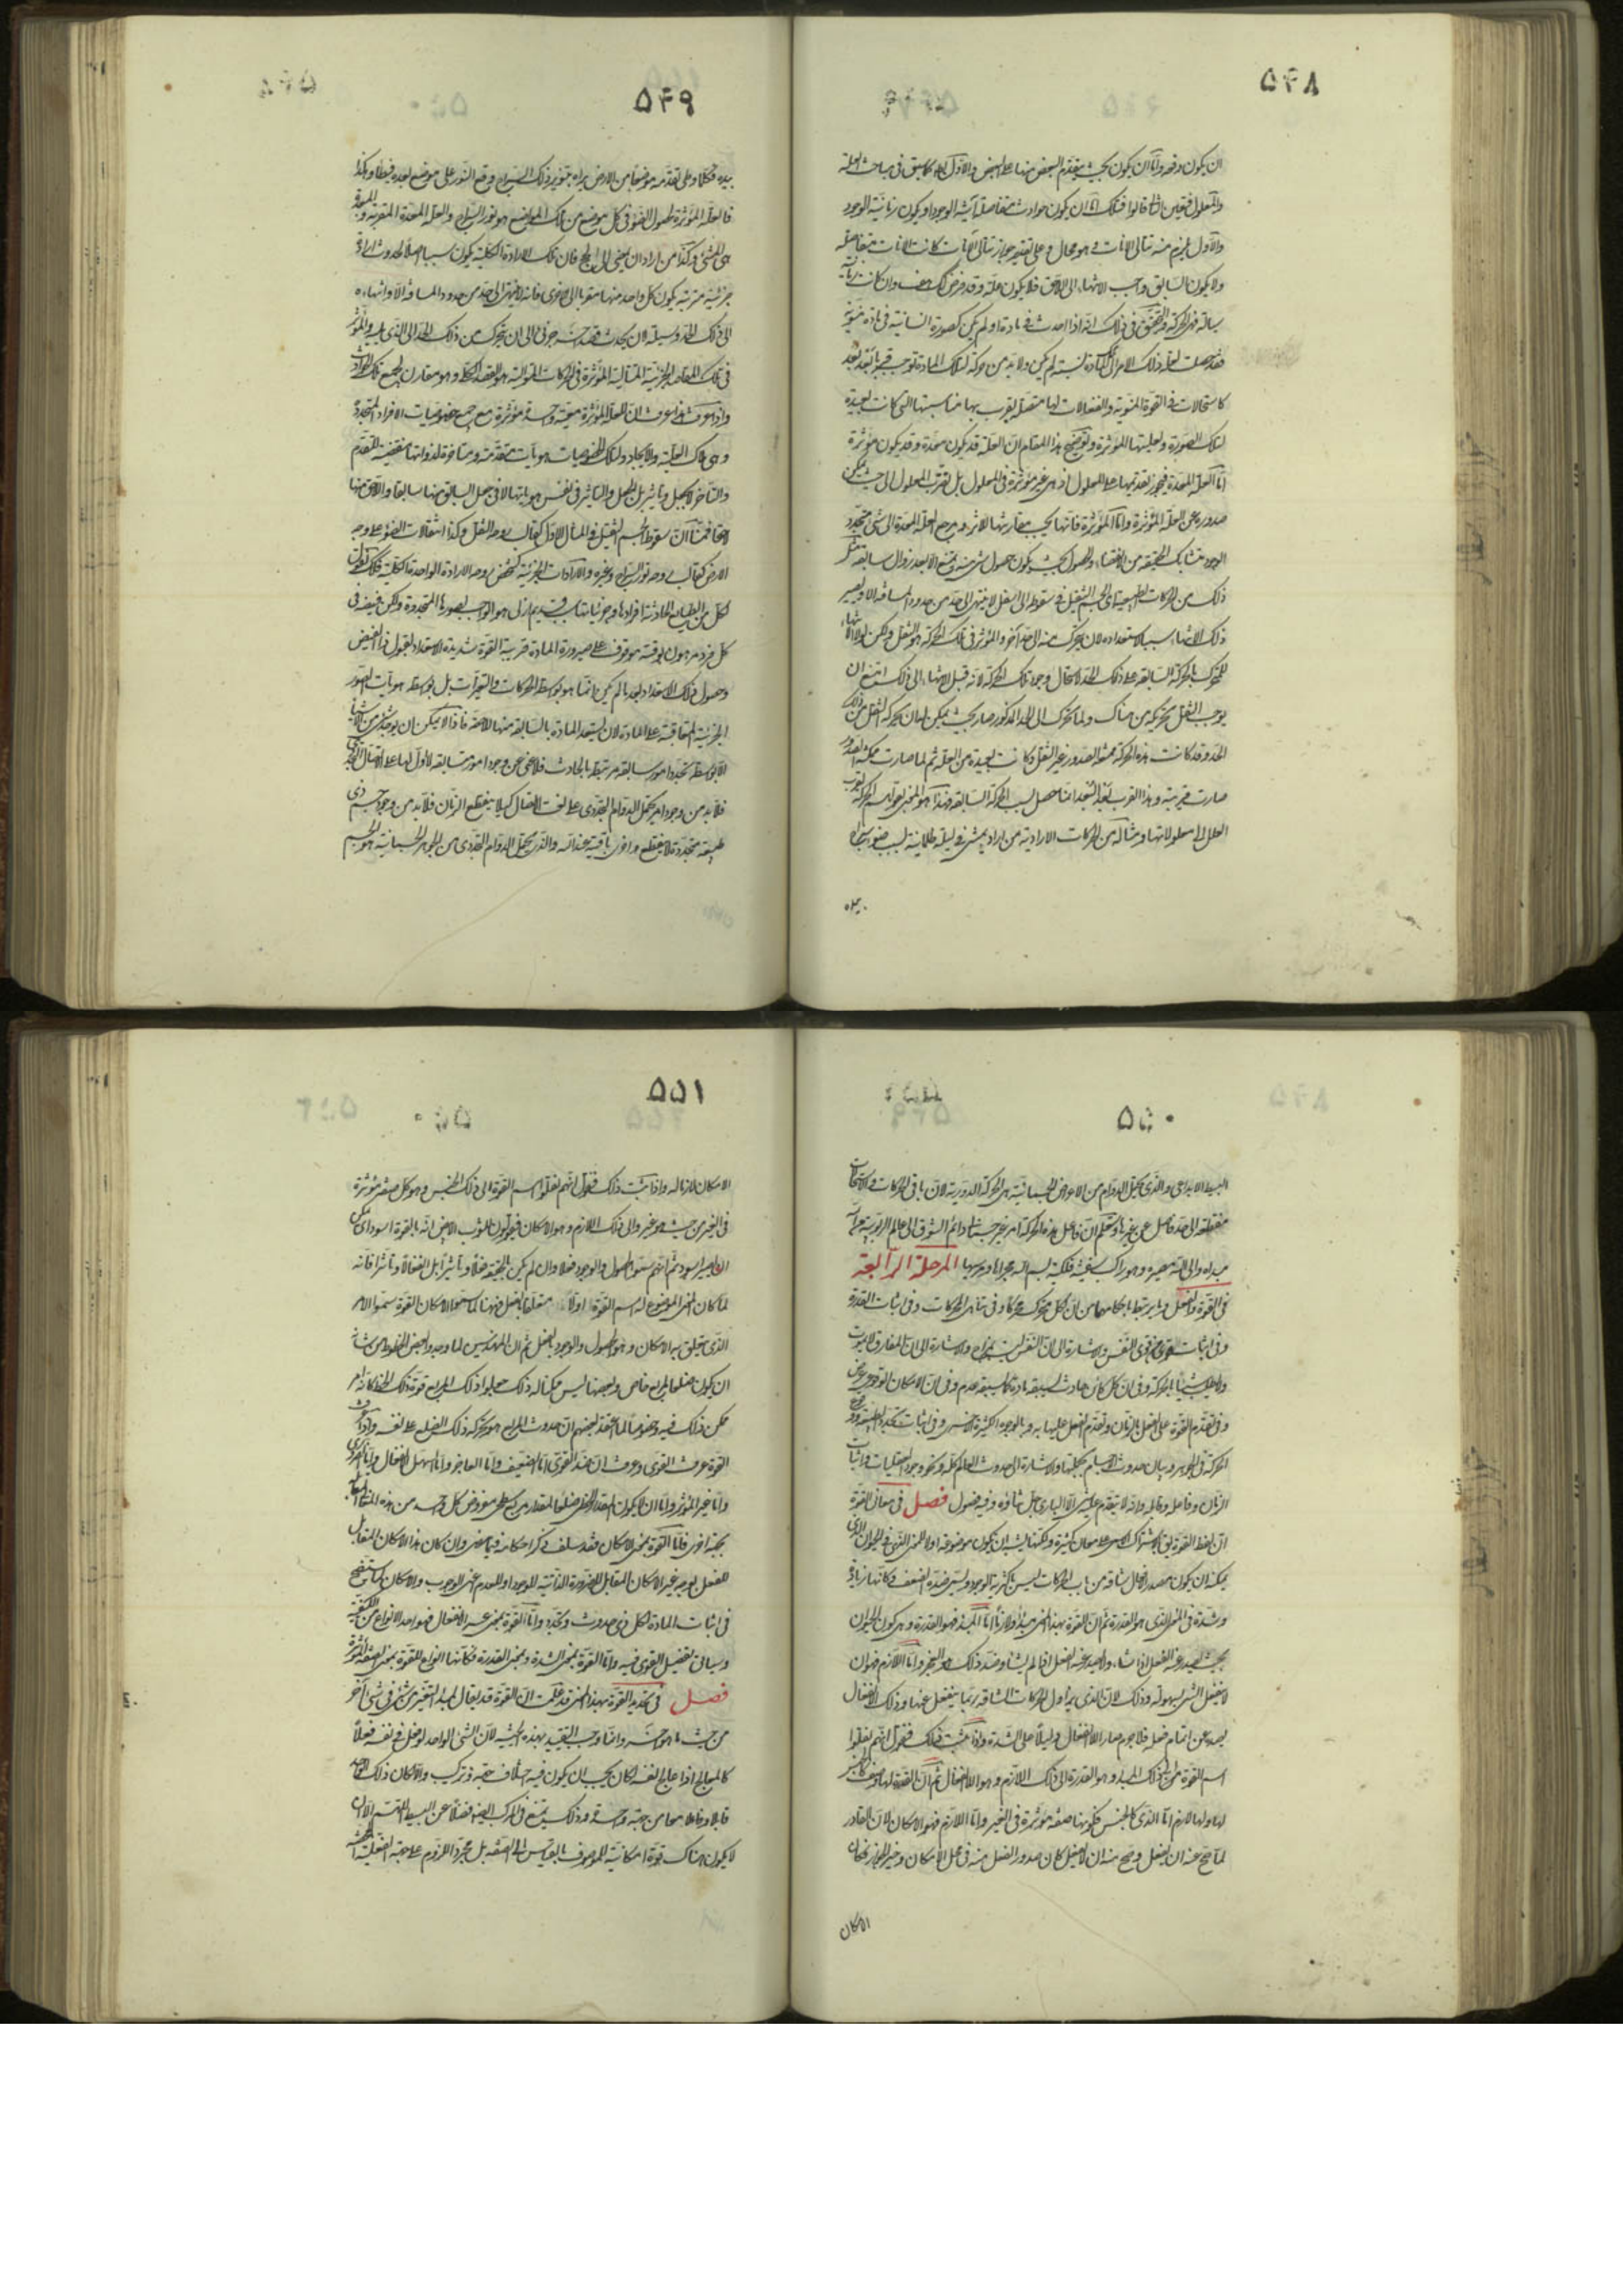 ٥٤٨
ان يكون دفعة واما ان يكون بحيث يتقدم البعض منها على البعض والاول باطل كما سبق فى مباحث العلة
والمعلول فتعين الثانى فاذا تلك اما ان يكون حوادث متفاصلة آنية الوجود او يكون زمانية الوجود
والاول يلزم منه تتالى الانات وهو محال وعلى تقدير جواز تتالى الآنات كانت الانات متفاصلة
ولا يكون السابق واجب الانتهاء الى اللاحق فلا يكون علة وقد فرض كذلك هف وان كانت زمانية
سيالة فهى الحركة والتحقيق فى ذلك انه اذا حدث فى مادة امر لم يكن كصورة انسانية فى مادة منوية
فقد حصلت لعلة ذلك الامر الى تلك المادة نسبة لم يكن ولا بد من حركة لتلك المادة توجب قربا بعد بعد
كاستحالات فى القوة المنوية وانفعالات لها متصلة يقرب بها مناسبتها التى كانت بعيدة
لتلك الصورة ولعليتها المؤثرة وتوضيح هذا المقام ان العلة قد يكون معدة وقد يكون مؤثرة
اما العلة المعدة فيجوز تقدمها على المعلول اذ هى غير مؤثرة فى المعلول بل تقرب المعلول الى حيث يمكن
صدوره عن العلة المؤثرة واما المؤثرة فانها يجب مقارنتها للاثر ومرجع العلة المعدة الى شىء متجدد
الوجود متشابك الحقيقة من الانقضاء والحصول بحيث يكون حصول شىء منه يمتنع الا بعد زوال سابقه مثل
ذلك من الحركات الطبيعية ان الجسم الثقيل فى سقوطه الى اسفل لا ينتهى الى حد من حدود المسافة الا ويصير
ذلك الانتهاء سببا لاستعداده لان يتحرك منه الى حد آخر والمؤثر فى تلك الحركة هو الثقل ولكن لولا انتهاء
المتحرك بالحركة السابقة على ذلك الحد لاستحال وجود تلك الحركة لانه قبل الانتهاء الى ذلك امتنع ان
يوجب الثقل تحريكه من هناك ولما تحرك الى الحد المذكور صار بحيث يمكن له ان يحركه الثقل من ذلك
الحد وقد كانت هذه الحركة ممتنعة الصدور عن الثقل وكانت بعيدة من العلة ثم لما صارت ممكنة الصدور
صارت قريبة وهذا القرب بعد البعد انما حصل بسبب الحركة السابقة فهذا هو المعنى بقولهم الحركة تقرب
العلل الى معلولاتها ومثاله من الحركات الارادية من اراد يمشى فى ليلة ظلمانية بسبب ضوء سراج
بيده
٥٤٩
بيده فكلما وطى بقدمه موضعا من الارض يراه بتنوير ذلك السراج وقع النور على موضع بعده فيطأه وهكذا
فالعلة المؤثرة لحصول الضوء فى كل موضع من تلك المواضع هو نور السراج والعلة المعدة المقربة والمبعدة
هى المشى وكذا من اراد ان يمضى الى الحج فان تلك الارادة الكلية يكون سببا اصلا لحدوث ارادة
جزئية مترتبة يكون كل واحد منها مقربا الى الاخرى فانه لا ينتهى الى حد من حدود المسافة الا وانتهاءه
الى ذلك الحد وسيلة لان يحدث قصد منه جزئى الى ان يتحرك من ذلك الحد الى الذى يليه والمؤثر
فى تلك المقاصد الجزئية المتتالية المؤثرة فى الحركات المتوالية هو القصد الكلى وهو مقارن لجميع تلك الحوادث
واذا عرفت هذا عرفت ان العلة المؤثرة معية واحدة مؤثرة مع جميع خصوصيات الافراد المتجددة
وهى ملاك العلية والايجاد ولتلك الخصوصيات هويات متقدمة ومتاخرة لذواتها مقتضية للتقدم
والتاخر لا بجعل وتاثير بل الجعل والتاثير فى نفس هوياتها لا فى جعل السابق منها سابقا واللاحق منها
لاحقا فمثال ان سقوط الجسم الثقيل فى المثال الاول وحه الثقل وكذا انتقالات الضوء على وجه
الارض وحه نور السراج وغيره والارادات الجزئية وحه الارادة الواحدة الكلية فكذلك القول
لكل من الطبايع الحادثة افرادها وجزئياتها سبب قديم ازلى هو الواهب لصورها المتجددة ولكن فيضه فى
كل فرد مرهون بوقته موقوف على صيرورة المادة قريبة القوة شديدة الاستعداد لقبول ذلك الفيض
وحصول ذلك الاستعداد بعد ما لم يكن انما هو بواسطة الحركات والتغيرات بل بواسطة هويات الصور
الجزئية المتعاقبة على المادة لان يستعد المادة بالسابقة منها للاحقة فاذا لا يمكن ان يوجد شىء من الاشياء
الا بواسطة تجدد امور سابقة مرتبطة بالحادث فلا غنى عن وجود امور سابقة لا اول لها على الاتصال التجددى
فلا بد من وجود امر يحتمل الدوام التجددى على نعت الاتصال كيلا ينقطع الزمان فلا بد من وجود جسم ذى
طبيعة متجددة لا ينقطع واخرى باقية عند الله والذى يحتمل الدوام التجددى من الجواهر الجسمانية هو الجسم
٥٥٠
البسيط الابداعى والذى يحتمل الدوام من الاعراض الجسمانية هى الحركة الدورية لان باقى الحركات والاستحالات
منقطعة الى حد فاصل عن غيرها وستعلم ان فاعل هذه الحركة امر غير جسمانى دائم الشوق الى عالم الربوبية من الله
مبداه والى الله مصيره وهو راكب سفينة فلكية بسم الله مجراها ومرسيها المرحلة الرابعة
فى القوة والفعل وما يرتبط باحكامهما من ان لكل متحرك محركا وفى تناهى الحركات وفى اثبات القدرة
وفى اثبات قوى النفس والاشارة الى ان النفس ليست بمزاج والاشارة الى ان المفارق لا يموت
ولا يطلب شيئا بالحركة وفى ان كل كائن حادث يسبقه مادة كما سبقه عدم وفى ان الامكان الوقوعى عرض
وفى تقدم القوة على الفعل بالزمان وتقدم الفعل عليها به وبالوجوه الكثيرة الاخر وفى اثبات تجدد الطبيعة ووقوع
الحركة فى الجوهر وبيان حدوث الاجسام بكليتها والاشارة الى حدوث العالم كله ونحو وجود العقليات واثبات
الزمان وفاعله وقابله وانه لا يتقدم عليه شىء الا البارى جل ثناؤه وفيه فصول فصل فى معانى القوة
ان لفظ القوة يقال باشتراك الاسم على معان كثيرة ولكنها يشبه ان يكون موضوعة اولا للمعنى الذى فى الحيوان الذى
يمكنه ان يكون مصدرا لافعال شاقة من باب الحركات ليس باكثرية الوجود ويسمى ضده الضعف وكانها زيادة
وشدة فى المعنى الذى هو القدرة ثم ان القوة بهذا المعنى مبدأ ولازما اما المبدأ فهو القدرة وهى كون الحيوان
بحيث يصدر عنه الفعل اذا شاء ولا يصدر عنه الفعل اذا لم يشأ وضد ذلك هو العجز واما اللازم فهو ان
لا ينفعل الشىء بسهولة وذلك لان الذى يزاول الحركات الشاقة ربما ينفعل عنها وذلك الانفعال
يصده عن اتمام فعله فلا جرم صار اللاانفعال دليلا على الشدة واذا ثبت ذلك فنقول انهم نقلوا
اسم القوة من ذلك المبدأ وهو القدرة الى ذلك اللازم وهو اللاانفعال ثم ان القدرة لها وصف كالجنس
لها ولها لازم اما الذى كالجنس فكونها صفة مؤثرة فى الغير واما اللازم فهو الامكان لان القادر
لما صح عنه ان يفعل وصح منه ان لا يفعل كان صدور الفعل منه فى محل الامكان وحيز الجواز فكان
الامكان
٥٥١
الامكان لازما له واذا ثبت ذلك فنقول انهم نقلوا اسم القوة الى ذلك الجنس وهو كل صفة مؤثرة
فى الغير من حيث هو غير والى ذلك اللازم وهو الامكان فيقولون للثوب الابيض انه بالقوة اسود اى يمكن
ان يصير اسود ثم انهم سموا الحصول والوجود فعلا وان لم يكن بالحقيقة فعلا وتأثيرا بل انفعالا وتأثرا فانه
لما كان المعنى الموضوع له اسم القوة اولا متعلقا بالفعل فههنا لما سموا الامكان القوة سموا الامر
الذى يتعلق به الامكان وهو الحصول والوجود بالفعل ثم ان المهندسين لما وجدوا بعض الخطوط من شانه
ان يكون ضلعا لمربع خاص وبعضها ليس ممكنا له ذلك جعلوا ذلك المربع قوة ذلك الخط كانه امر
ممكن ذلك فيه وخصوصا لما اعتقد بعضهم ان حدوث المربع هو بحركة ذلك الضلع على نفسه واذا عرفت
القوة عرفت القوى وعرفت ان ضد القوى اما الضعيف واما العاجز واما السهل الانفعال واما الضرورى
واما غير المؤثر واما ان لا يكون المقدار الخطى ضلعا لمقدار مربع سطحى مفروض لكل واحد من هذه المتقابلات
بجهة اخرى فاما القوة بمعنى الامكان فقد سلف ذكر احكامه فيما مضى وان كان هذا الامكان المقابل
للفعل بوجه غير الامكان المقابل للضرورة الذاتية للوجود او للعدم اعنى الوجوب والامكان كما ستتضح
فى اثبات المادة لكل ذى حدوث وتجدد واما القوة بمعنى عدم الانفعال فهو احد الانواع من الكيفية
وسياتى تفصيل القول فيه واما القوة بمعنى الشدة وبمعنى القدرة فكانها انواع للقوة بمعنى الصفة المؤثرة
فصل فى تحديد القوة بهذا المعنى قد علمت ان القوة قد يقال لمبدأ التغير من شىء فى شىء آخر
من حيث هو آخر وانما وجب التقييد بهذه الحيثية لان الشىء الواحد لو فعل فى نفسه فعلا
كالمعالج اذا عالج نفسه لكان يجب ان يكون فيه اختلاف جهة وتركيب والا لكان ذلك الواحد
قابلا وفاعلا معا من جهة واحدة وذلك ممتنع فى المركب ايضا فضلا عن البسيط اللهم الا ان
لا يكون هناك قوة امكانية للموصوف بالقياس الى الصفة بل مجرد اللزوم على جهة الفعلية